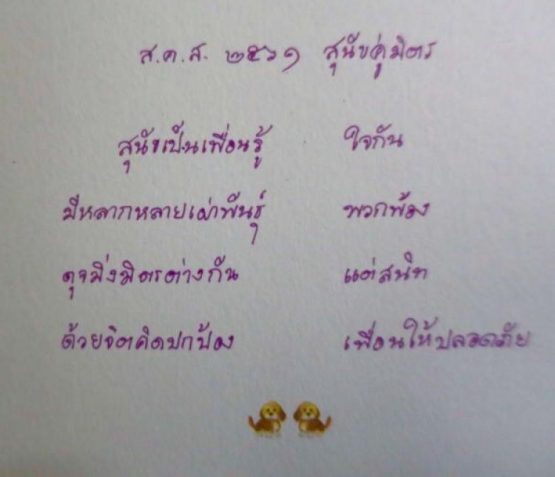 ส.ค.ส. ๒๕๖๑ สุนัขคู่มิตร
สุนัขเป็นเพื่อนรู้ ใจกัน
มีหลากหลายเผ่าพันธุ์ พวกพ้อง
ดุจมิ่งมิตรต่างกัน แต่สนิท
ด้วยจิตคิดปกป้อง เพื่อนให้ปลอดภัย